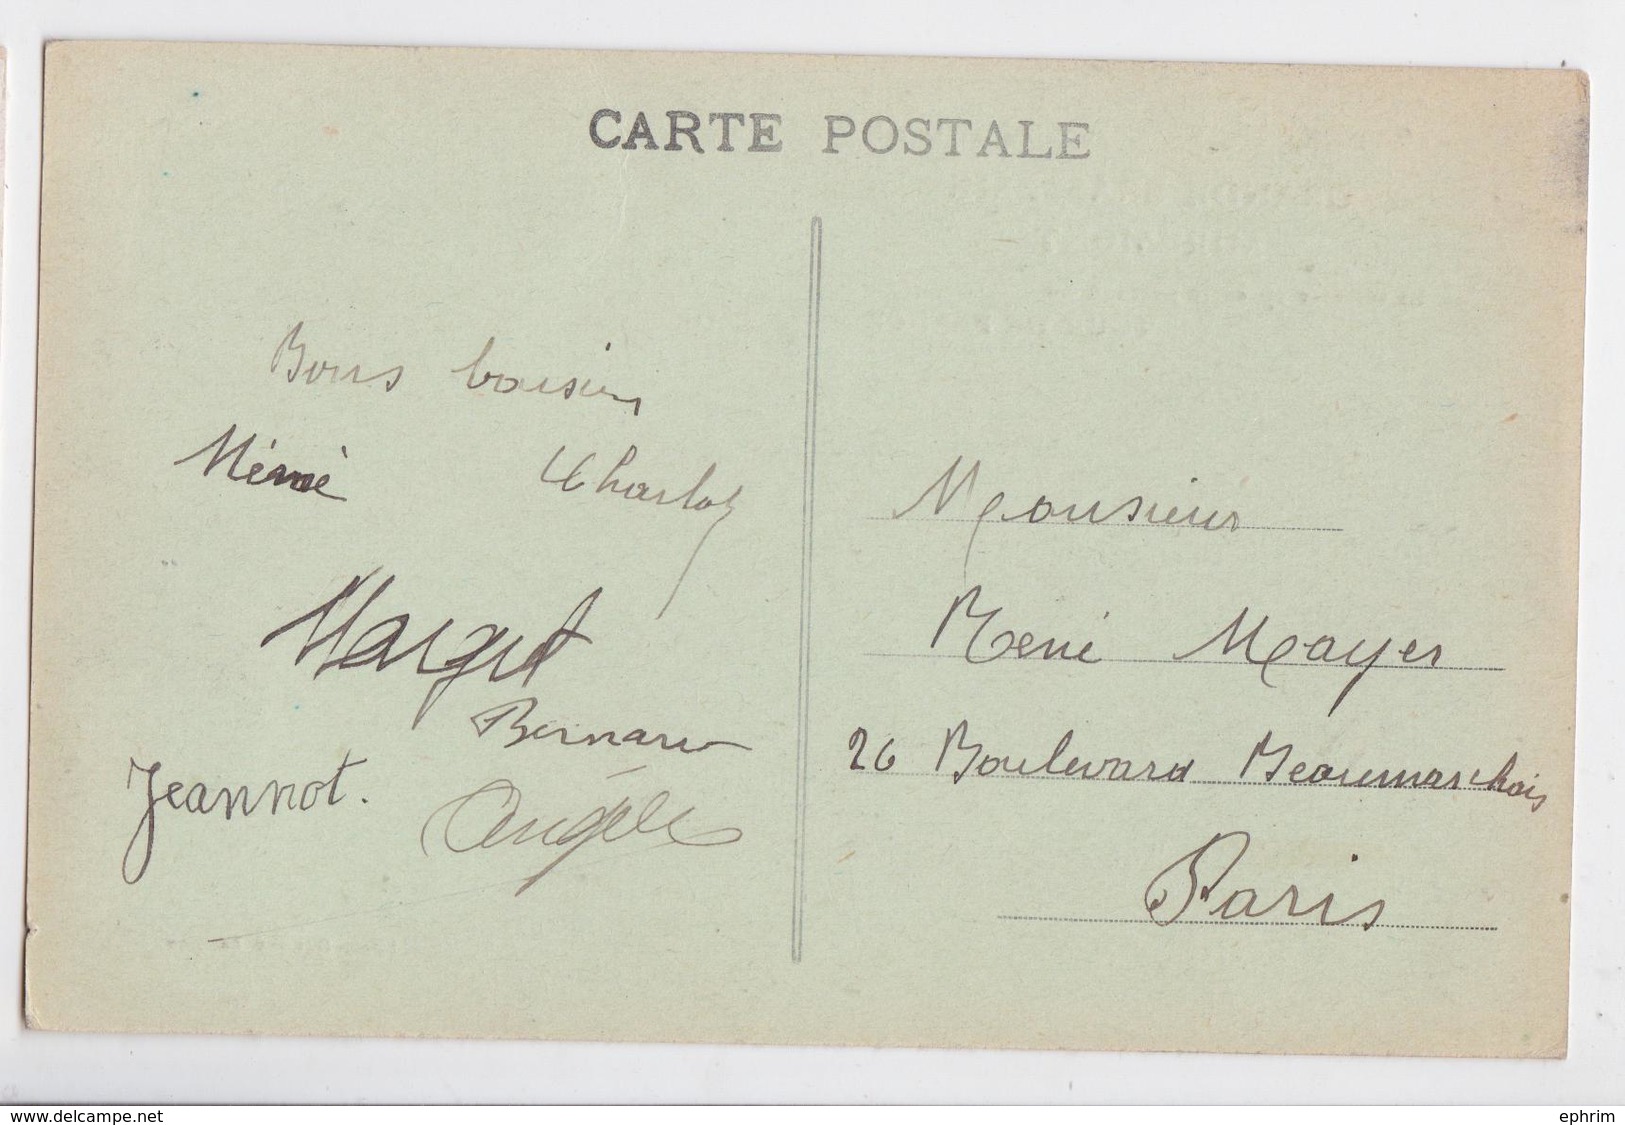 CARTE POSTALE
Bons baisers
Mémé Charlot
Margot
Bernard
Jeannot.
Angèle
Monsieur
René Mayer
26 Boulevard Beaumarchais
Paris
www.delcampe.net
ephrim